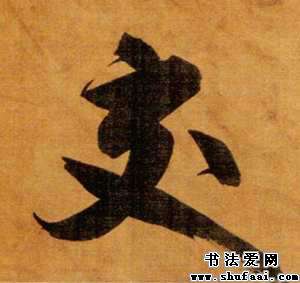 交
书法爱网
www.shufaai.com